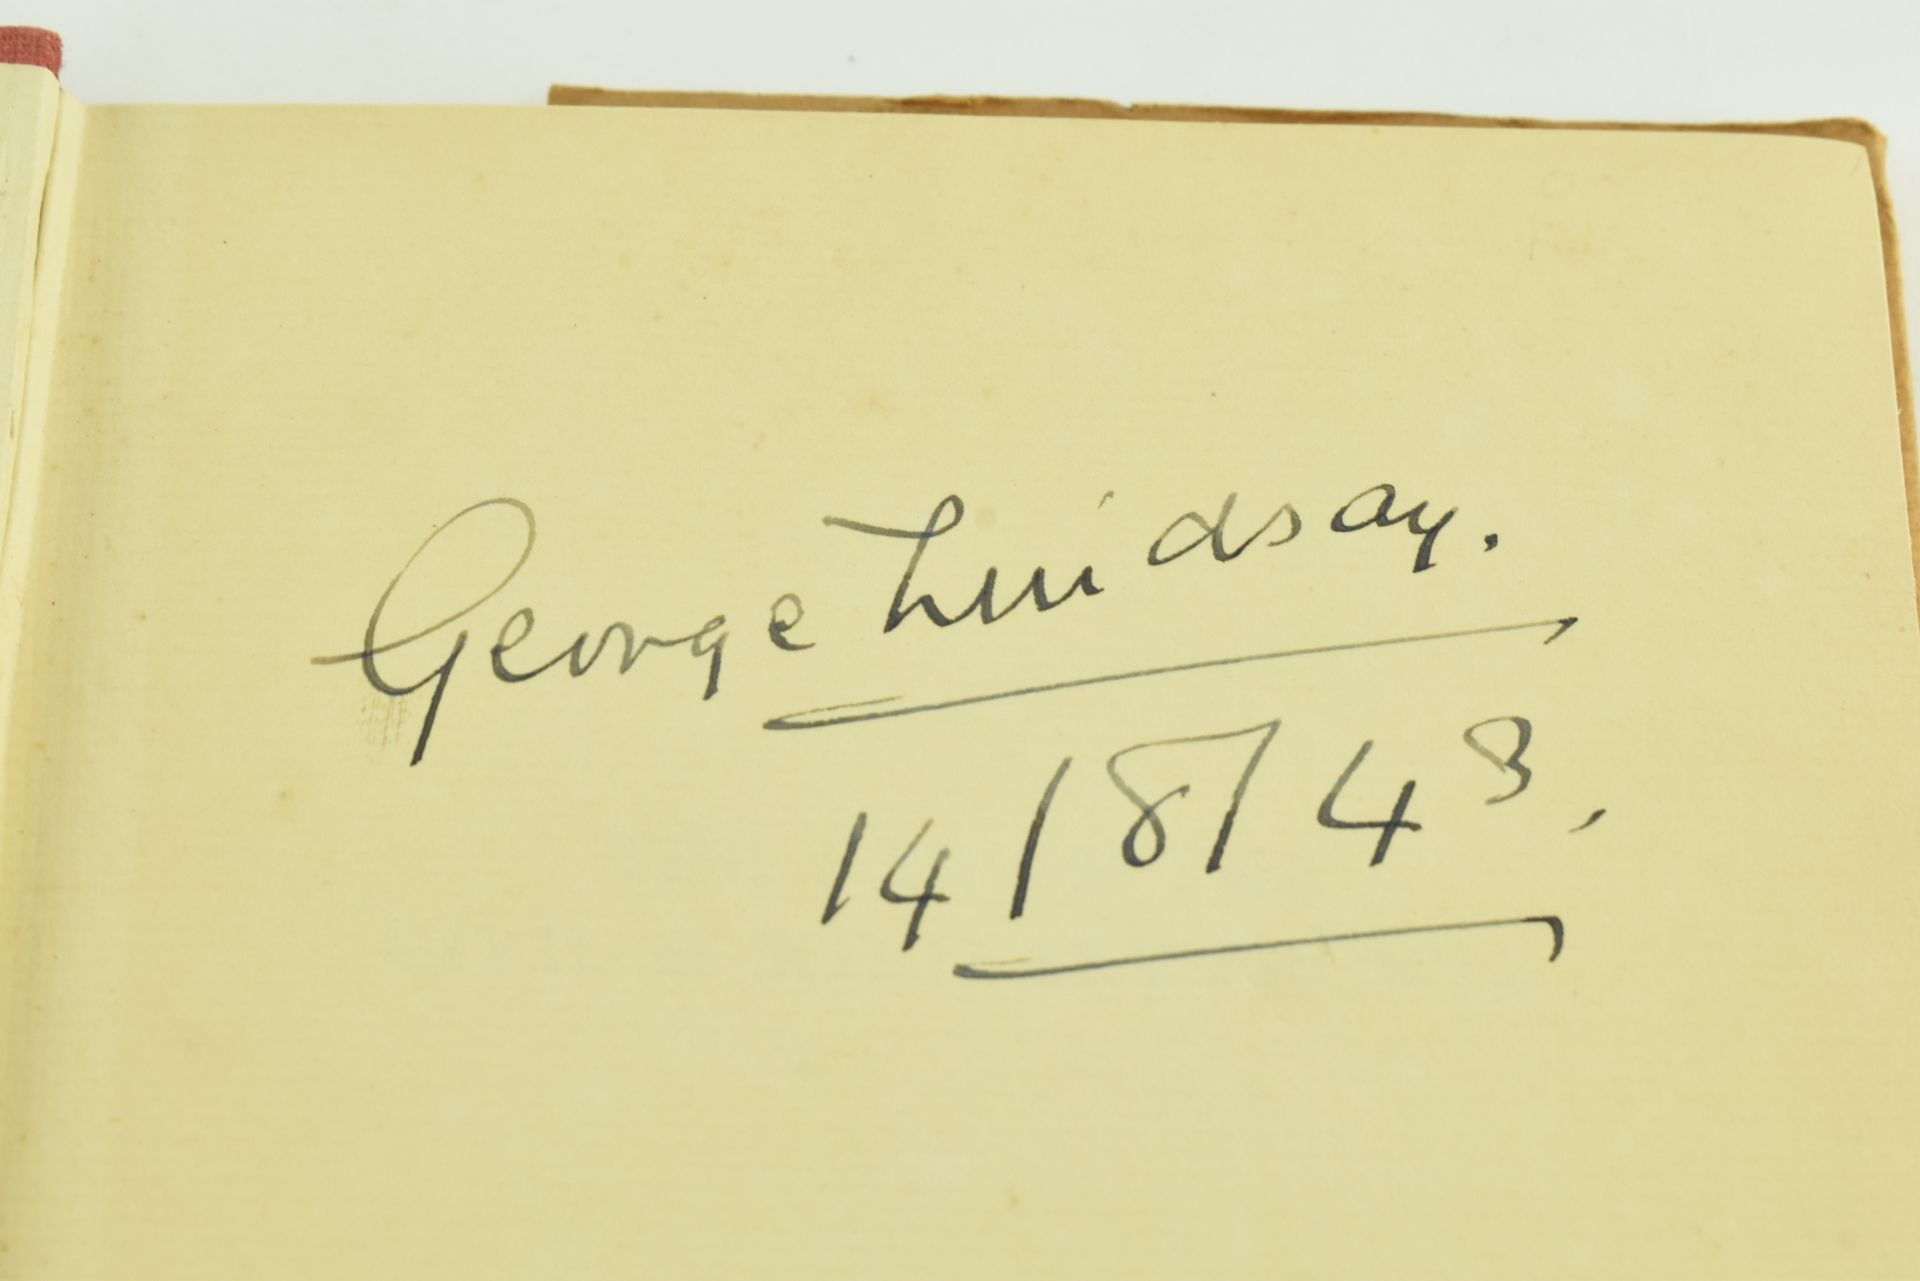 George Lindsay.
14/8/43.